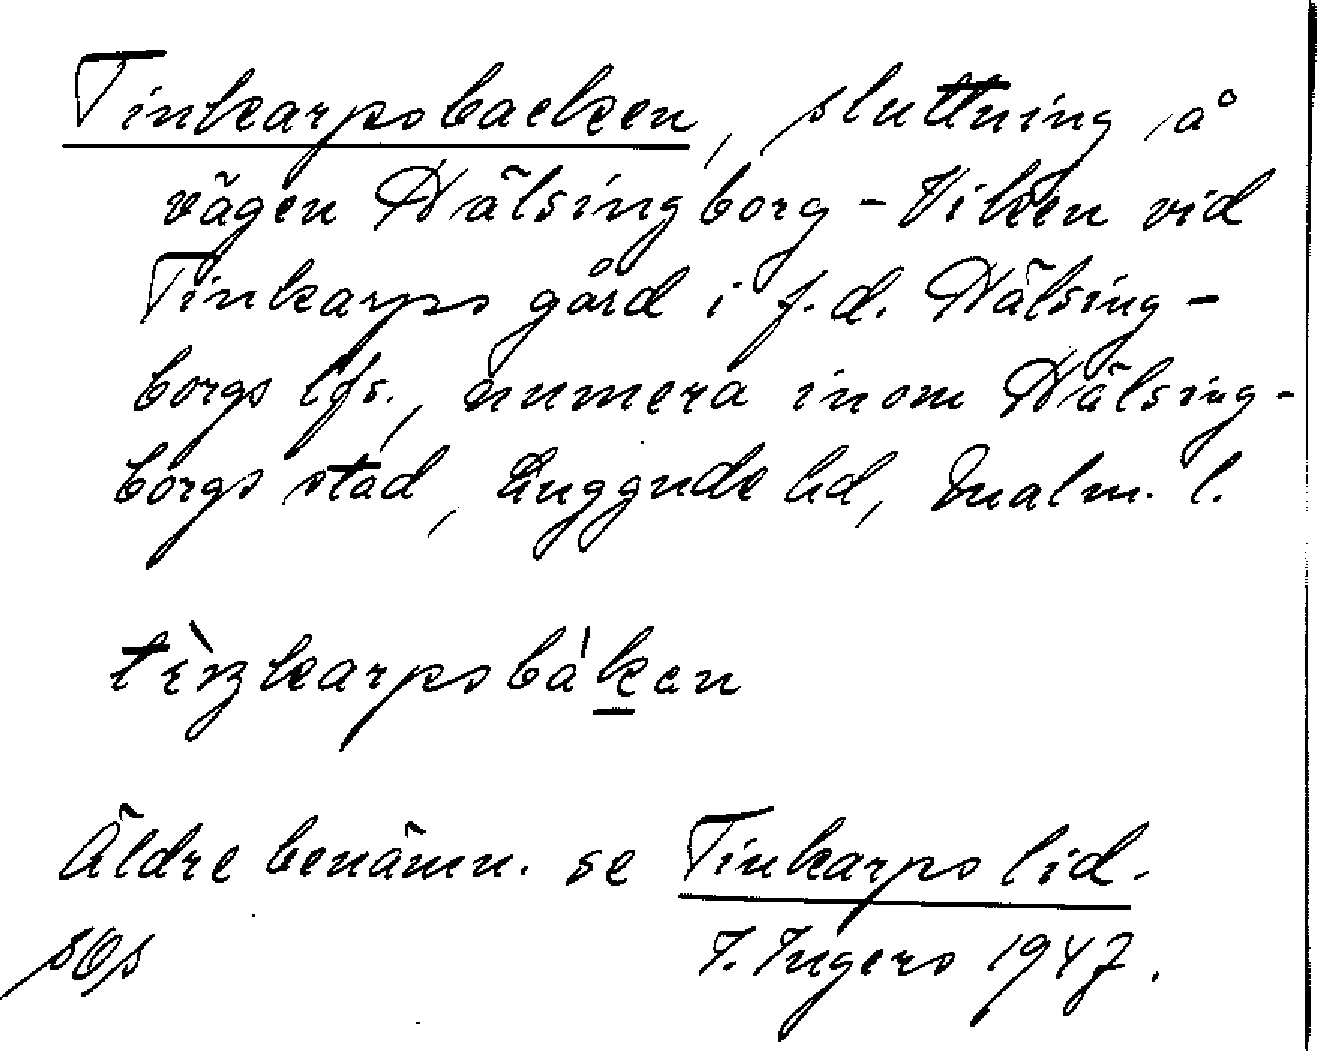 Tinkarpsbacken, sluttning å
vägen Hälsingborg - Viken vid
Tinkarps gård i f.d. Hälsing-
borgs lfs., numera inom Hälsing-
borgs stad, Luggude hd, Malm. l.
tìŋkarpsbák̲an
Äldre benämn. se Tinkarps lid.
I. Ingers 1947.